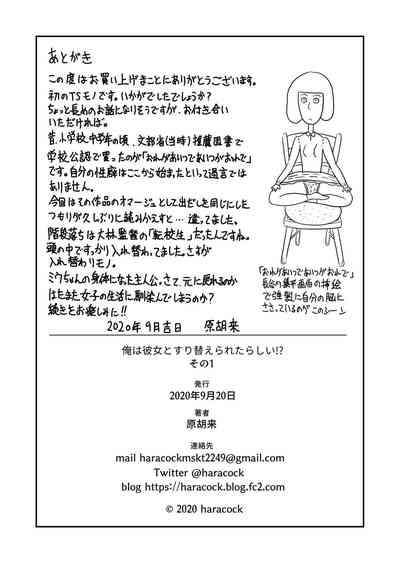 あとがき
この度はお買い上げまことにありがとうございます。
初のTSモノです。いかがでしたでしょうか?
ちょっと長めのお話になりそうですが、お付き合い
いただければ。
昔、小学校中学年の頃、文部省(当時)推薦図書で
学校公認で買ったのが「おれがあいつであいつがおれで」
です。自分の性癖はここから始まったといって過言では
ありません。
今回はその作品のオマージュとして出だしを同じにした
つもりが久しぶりに読みかえすと…違ってました。
階段落ちは大林監督の「転校生」だったんですね。
頭の中ですっかり入れ替わってました。さすが
入れ替わりモノ。
ミクちゃんの身体になった主人公。さて、元に戻れるのか
はたまた女子の生活に馴染んでしまうのか?
続きをお楽しみに!!
2020年9月吉日 原胡来
「おれがあいつであいつがおれで」
長谷川集平画伯の挿絵
で強烈に自分の脳に
ささっているのがこのシーン
俺は彼女とすり替えられたらしい!?
その1
発行
2020年9月20日
著者
原胡来
連絡先
mail haracockmskt2249@gmail.com
Twitter @haracock
blog https://haracock.blog.fc2.com
© 2020 haracock